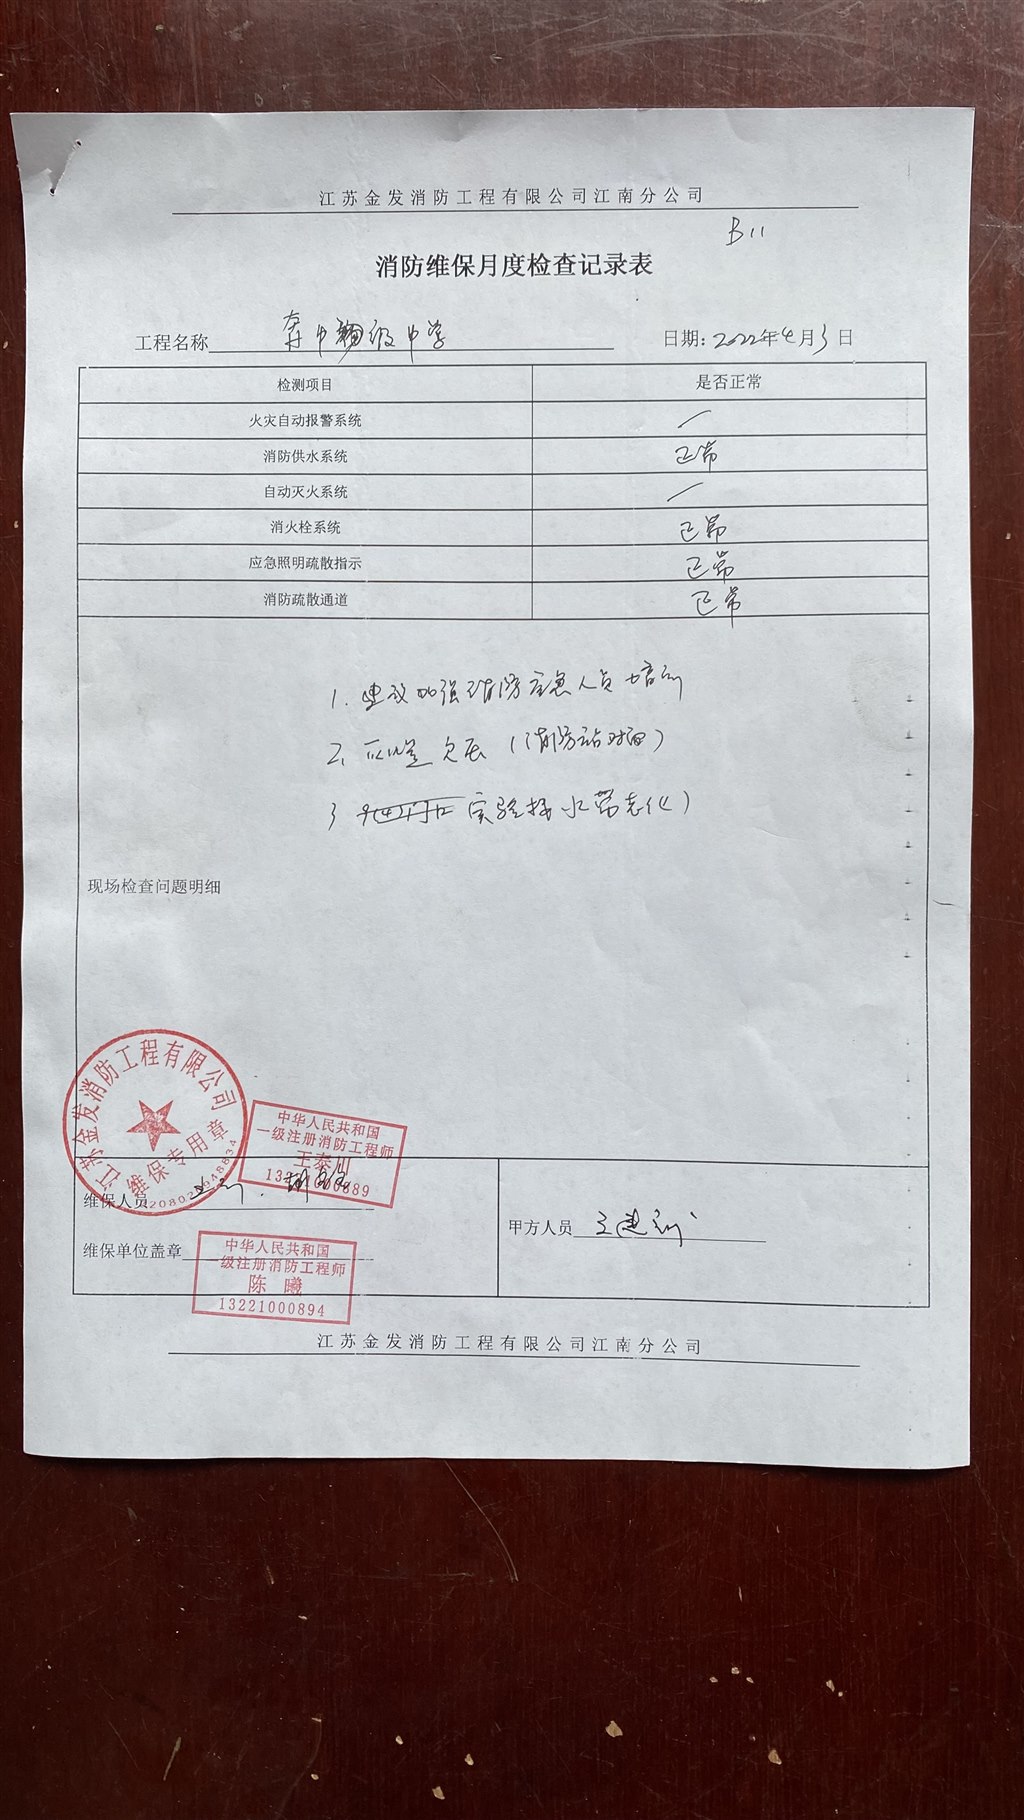 江苏金发消防工程有限公司江南分公司
B11
消防维保月度检查记录表
工程名称 奔牛初级中学 日期: 2022年4月3日
检测项目 是否正常
火灾自动报警系统 /
消防供水系统 正常
自动灭火系统 /
消火栓系统 正常
应急照明疏散指示 正常
消防疏散通道 正常
1. 建议加强消防应急人员培训
2. 欠压 (消防站对面)
3 实验楼水带老化)
现场检查问题明细
江苏金发消防工程有限公司
维保专用章
中华人民共和国
一级注册消防工程师
王泰川
维保人员
甲方人员
维保单位盖章
中华人民共和国
一级注册消防工程师
陈 曦
13221000894
江苏金发消防工程有限公司江南分公司